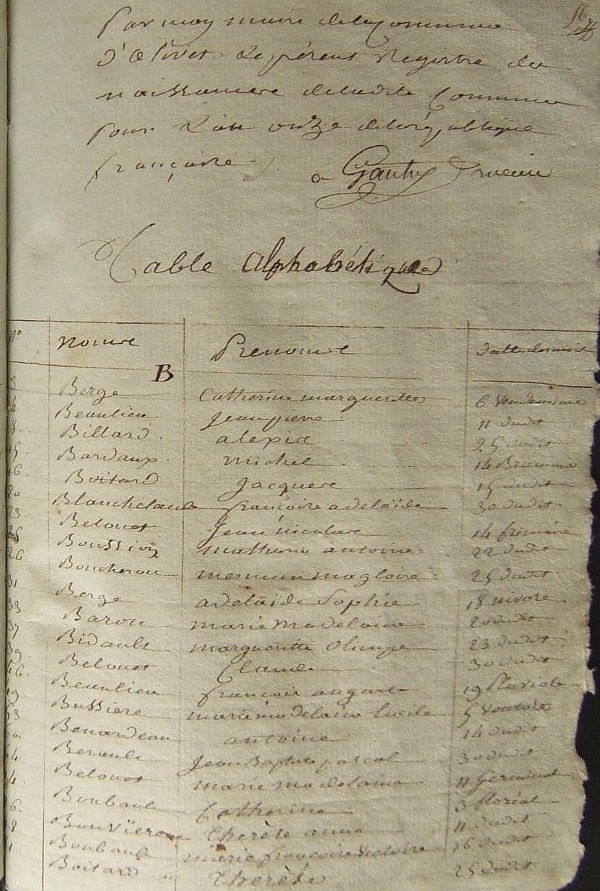 Par moy maire de la Commune
d'Olivet Le présent Registre de
naissances de ladite Commune
pour L'an onze de la république
françoise
a Gautry maire
Table Alphabétique
No Noms Prenoms
B
Berge Catherine margueritte 6 Vendemiaire
Beaulieu jean pierre 11 dudit
Billard alexis 25 dudit
Bardaux michel 14 Brumaire
Boitard jacques 15 dudit
20 françoise adelaïde 30 dudit
23 Belouet jean nicolas 14 frimaire
26 22 dudit
Boucherau 25 dudit
31 Berge adelaïde Sophie 18 nivose
33 Baron marie madelaine 20 dudit
37 Bidault margueritte Olimpe 23 dudit
39 Belouet Claude 30 dudit
Beaulieu françois auguste 19 Pluviose
Bussiere marie madelaine Lucile 5 Ventose
antoine 14 dudit
Berault Jean Baptiste pascal 30 dudit
Belouet marie madelaine 11 Germinal
Catherine 3 floréal
therèse anne 11 dudit
marie françoise Victoire 16 dudit
Boitard Therèse 25 dudit